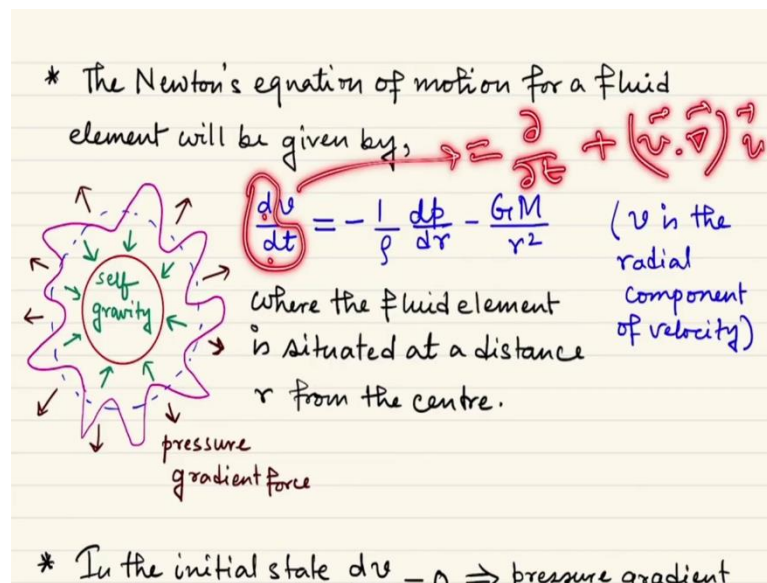 * The Newton's equation of motion for a fluid
element will be given by,
= ∂/∂t + (v⃗.∇⃗)v⃗
dv/dt = - 1/ρ dp/dr - GM/r²
(v is the
radial
component
of velocity)
self
gravity
where the fluid element
is situated at a distance
r from the centre.
pressure
gradient force
* In the initial state dv = 0 ⇒ pressure gradient